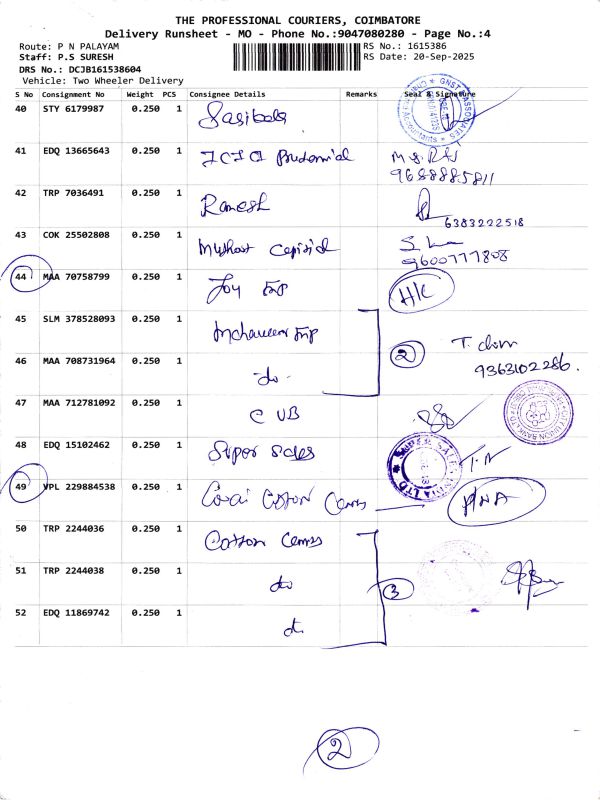 THE PROFESSIONAL COURIERS, COIMBATORE
Delivery Runsheet - MO - Phone No.:9047080280 - Page No.:4
Route: P N PALAYAM RS No.: 1615386
Staff: P.S SURESH RS Date: 20-Sep-2025
DRS No.: DCJB161538604
Vehicle: Two Wheeler Delivery
S No Consignment No Weight PCS Consignee Details Remarks Seal & Signature
40 STY 6179987 0.250 1 Sasibala
41 EDQ 13665643 0.250 1 ICICI Prudential
9688885811
42 TRP 7036491 0.250 1 Ramesh
6383222518
43 COK 25502808 0.250 1
9600777808
44 MAA 70758799 0.250 1 Joy Imp H/C
45 SLM 378528093 0.250 1
2
46 MAA 708731964 0.250 1 do.
9363102286.
47 MAA 712781092 0.250 1 C UB
48 EDQ 15102462 0.250 1 Super Sales
49 VPL 229884538 0.250 1 Cotton
50 TRP 2244036 0.250 1 Cotton
51 TRP 2244038 0.250 1 do
3
52 EDQ 11869742 0.250 1
2